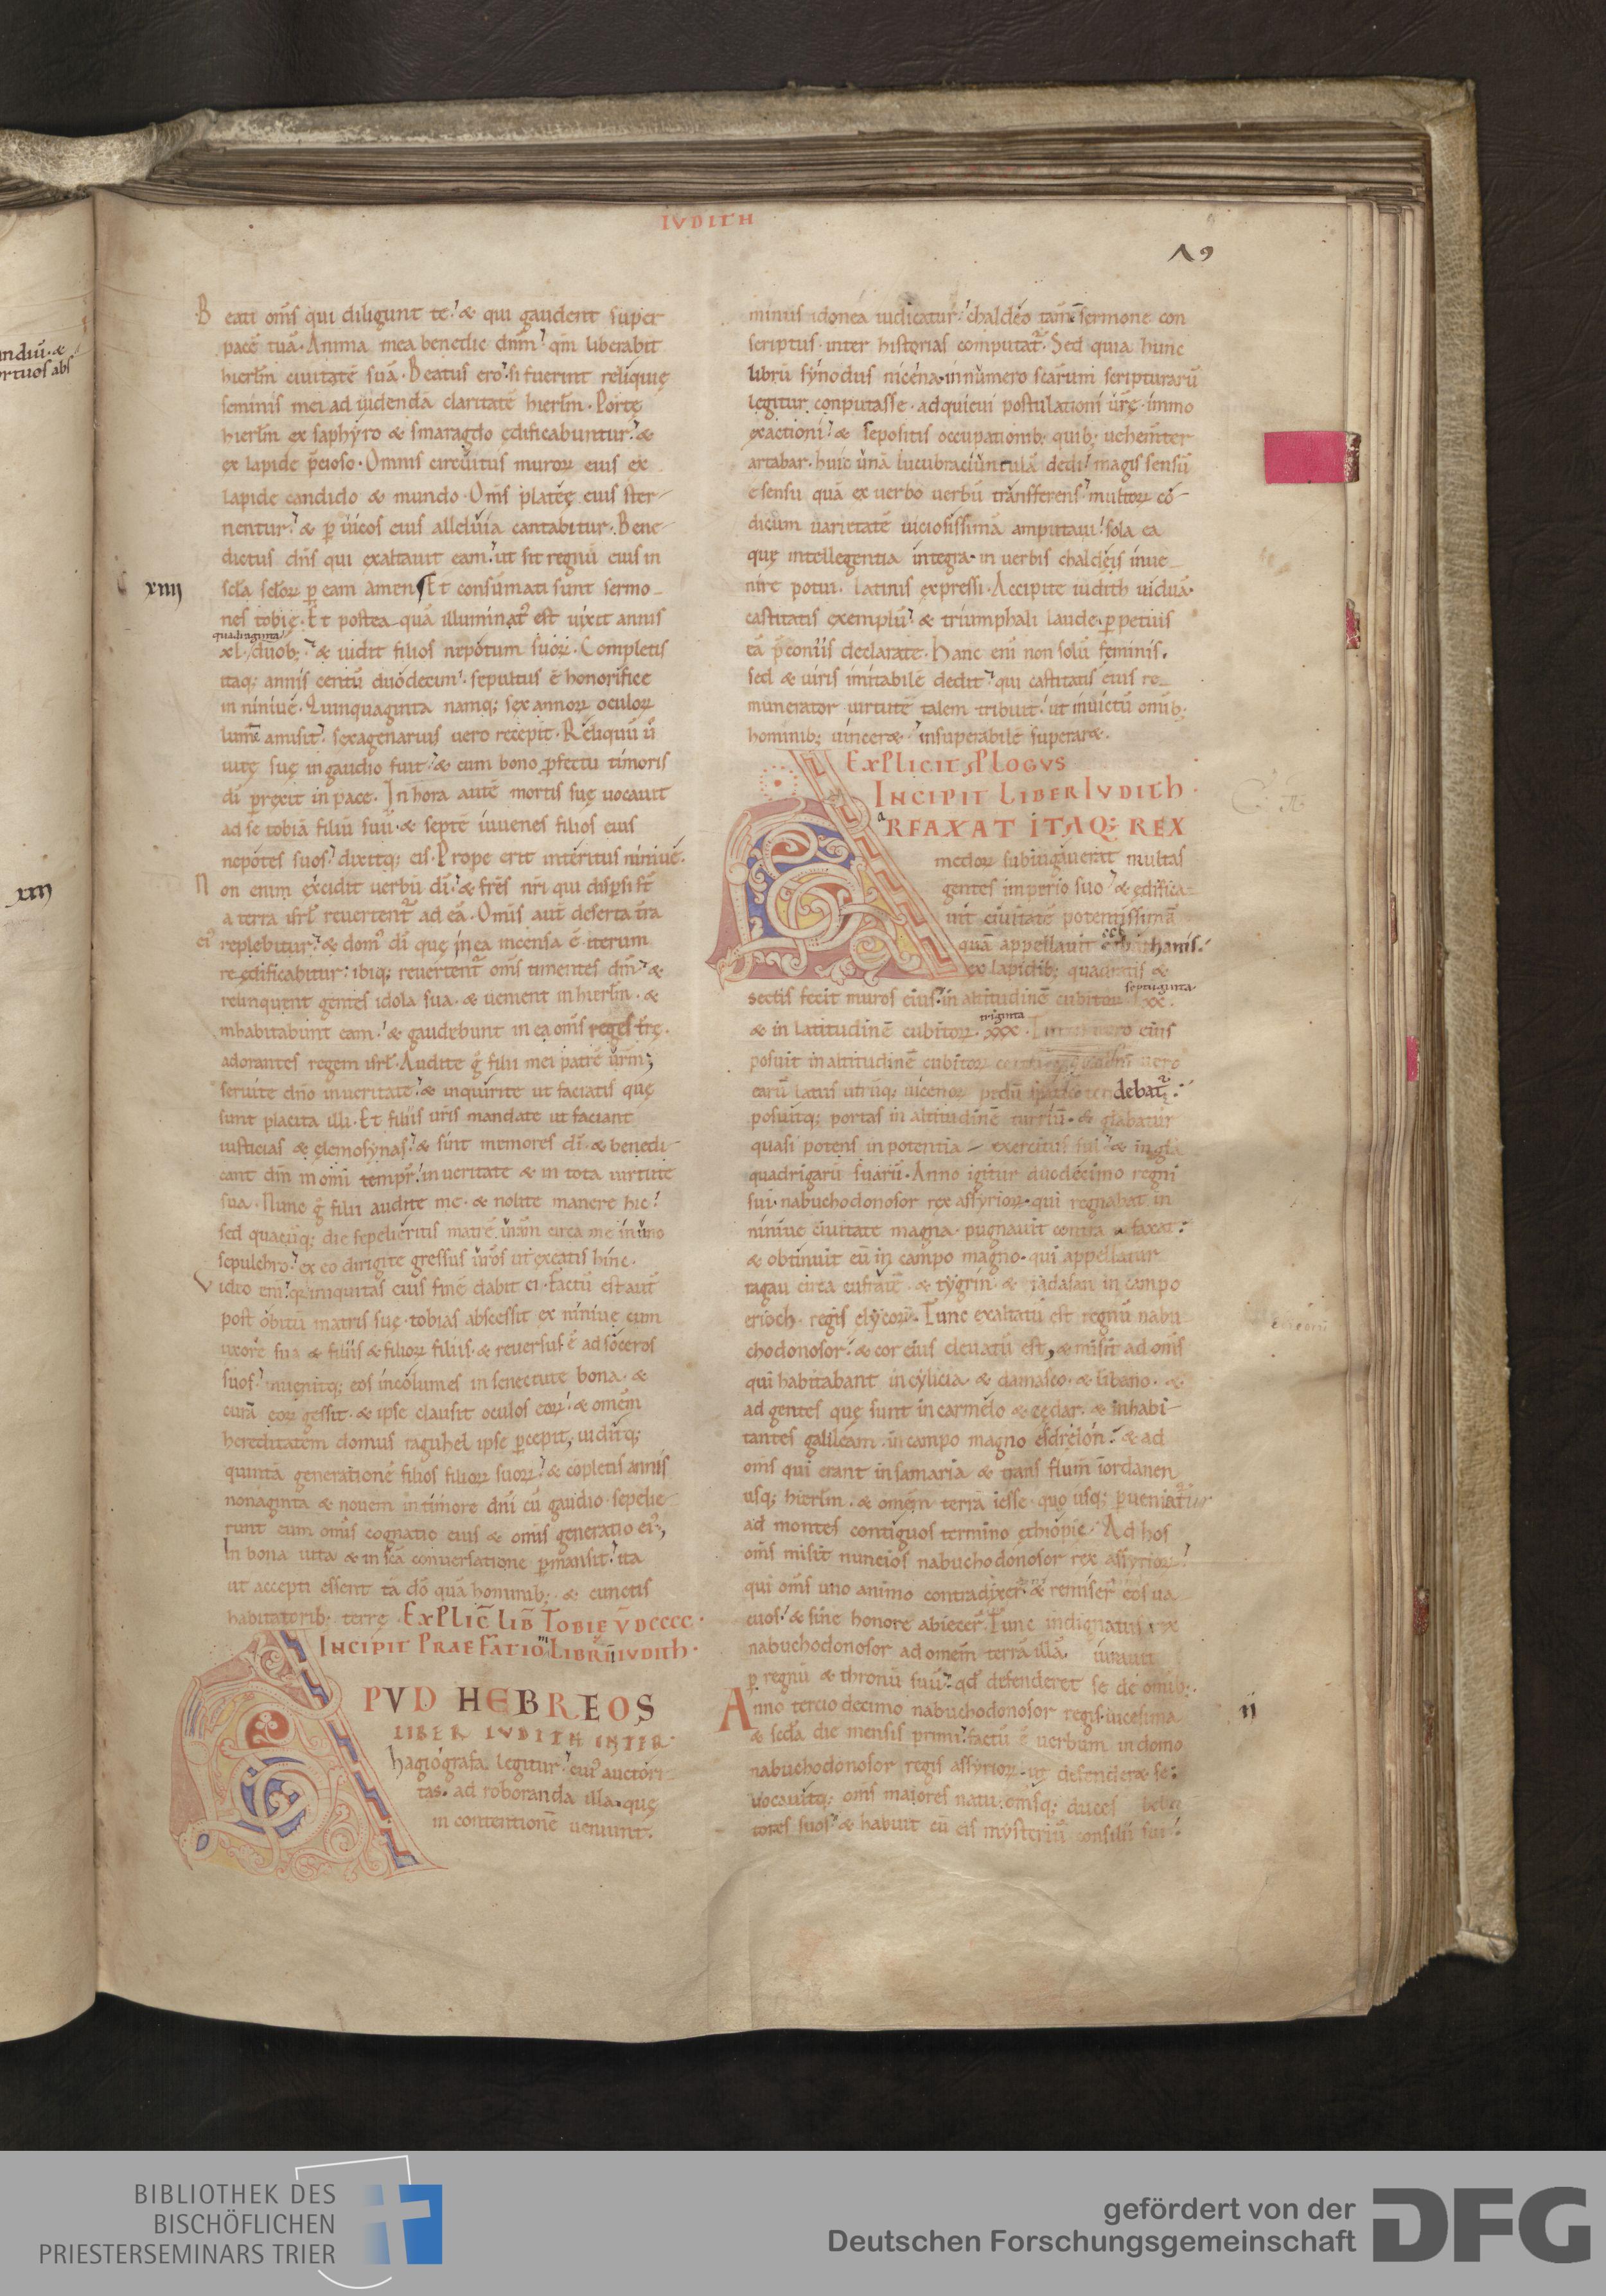 IVDITH
79
Beati oms̄ qui diligunt te. & qui gaudent super
pacē tuā. Anima mea benedic dn̄m. qm̄ liberabit
hierl̄m ciuitatē suā. Beatus ero. si fuerint reliquię
seminis mei ad uidendā claritatē hierl̄m. Portę
hierl̄m ex saphyro & smaragdo ędificabuntur. &
ex lapide p̄cioso. Omnis circuitus muroꝝ eius ex
lapide candido & mundo. Oms̄ platęę eius ster-
nentur. & ꝑ uicos eius alleluia cantabitur. Bene-
dictus dn̄s qui exaltauit eam. ut sit regnū eius in
scl̄a scl̄oꝝ ꝑ eam amen. Et consumati sunt sermo-
xiiii
nes tobię. Et postea quā illuminatꝰ est uixit annis
quadraginta
xl. duob; & uidit filios nepotum suoꝝ. Completis
itaq; annis centū duodecim. sepultus ē honorifice
in niniuē. Quinquaginta namq; sex annoꝝ oculoꝝ
lum̄ amisit. sexagenarius uero recepit. Reliquū ū
uitę suę in gaudio fuit. & cum bono ꝓfectu timoris
dī perrexit in pace. In hora autē mortis suę uocauit
ad se tobiā filiū suū. & septē iuuenes filios eius
nepotes suos. dixitq; eis. Prope erit interitus niniuē.
Non enim excidit uerbū dī. & frēs nr̄i qui disꝑsi st̄
a terra isrl̄ reuertentᷣ ad eā. Omis aut̄ deserta tr̄a
eiꝰ replebitur. & domꝰ dī quę in ea incensa ē iterum
reędificabitur. ibiq; reuertentᷣ oms̄ timentes dm̄. &
relinquent gentes idola sua. & uenient in hierl̄m. &
inhabitabunt eam. & gaudebunt in ea oms̄ reges tr̄ę.
adorantes regem isrl̄. Audite g̊ filii mei patrē ur̄m;
seruite dn̄o in ueritate. & inquirite ut faciatis quę
sunt placita illi. Et filiis ur̄is mandate ut faciant
iusticias & ęlemosynas. & sint memores dī. & benedi-
cant dm̄ in omi tempr̄. in ueritate & in tota uirtute
sua. Nunc g̊ filii audite me. & nolite manere hic.
sed quacūq; die sepelieritis matrē ur̄am circa me in uno
sepulchro. ex eo dirigite gressus ur̄os ut exeatis hinc.
Video eni. qr̄ iniquitas eius finē dabit ei. Factū est aut̄
post obitū matris suę. tobias abscessit ex niniuę cum
uxore sua & filiis & filioꝝ filiis. & reuersus ē ad soceros
suos. inuenitq; eos incolumes in senectute bona. &
curā eoꝝ gessit. & ipse clausit oculos eoꝝ. & omēm
hereditatem domus raguhel ipse ꝑcepit, uiditq;
quintā generationē filios filioꝝ suoꝝ. & cōpletis annis
nonaginta & nouem in timore dn̄i cū gaudio. sepelie-
runt eum omīs cognatio eius & omīs generatio eiꝰ,
In bona uita & in scā conuersatione ꝑmansit. ita
ut accepti essent tā dō quā hominib; & cunctis
habitatorib; terrę. Explic̄ Lib̄ Tobie v̄ dcccc.
Incipit Praefatio Libri Iudith.
APVD HEBREOS
LIBER IVDITH INTER
hagiografa legitur. cuiꝰ auctori-
tas. ad roboranda illa. quę
in contentionē ueniunt.
minus idonea iudicatur. chaldeo tam̄ sermone con
scriptus. inter historias computatᷣ. Sed quia hunc
librū synodus nicena. in numero scārum scripturarū
legitur conputasse. adquieui postulationi ur̄ę. immo
exactioni. & sepositis occupationib; quib; uehem̄ter
artabar. huic unā lucubraciunculā dedi. magis sensū
e sensu quā ex uerbo uerbū transferens. multoꝝ co-
dicum uarietatē uiciosissimā amputaui. sola ea
quę intellegentia integra. in uerbis chaldęis inue-
nire potui. latinis expressi. Accipite iudith uiduā.
castitatis exemplū. & triumphali laude. ꝑpetuis
eā p̄coniis declarate. Hanc eni non solū feminis.
sed & uiris imitabilē dedit. qui castitatis eius re-
munerator uirtutē talem tribuit. ut inuictū omīb;
hominib; uincer&. insuperabilē superar&.
Explicit Plogus
Incipit Liber Iudith.
ARFAXAT ITAQ; REX
medoꝝ subiugauerat multas
gentes imperio suo. & ędifica-
uit ciuitatē potentissimā
quā appellauit ecbathanis.
ex lapidib; quadratis &
septuginta
sectis fecit muros eius. in altitudinē cubitoꝝ lxx.
triginta
& in latitudinē cubitoꝝ xxx. eius
posuit in altitudinē cubitoꝝ uero
earū latus utrūq; uicenoꝝ pedū spatio tendebatᷣ.
posuitq; portas in altitudinē turriū. & gl̄abatur
quasi potens in potentia exercitus sui. & in gl̄a
quadrigarū suarū. Anno igitur duodecimo regni
sui. nabuchodonosor rex assyrioꝝ. qui regnabat in
niniue ciuitate magna. pugnauit contra arfaxat.
& obtinuit eū in campo magno. qui appellatur
ragau circa eufratē. & tygrin. & iadasan in campo
erioch. regis elycoꝝ. Tunc exaltatū est regnū nabu
chodonosor. & cor eius eleuatū est, & misit ad oms̄
qui habitabant in cylicia. & damasco. & libano. &
ad gentes quę sunt in carmelo & cędar. & inhabi-
tantes galileam. in campo magno esdrelon. & ad
oms̄ qui erant in samaria & trans flum̄ iordanen
usq; hierl̄m. & omēm terrā iesse. quo usq; ꝑueniatᷣur
ad montes contiguos termino ęthiopię. Ad hos
oms̄ misit nuncios nabuchodonosor rex assyrioꝝ.
qui oms̄ uno animo contradixer̄. & remiser̄ eos ua
cuos. & sine honore abiecer̄. Tunc indignatus rex
nabuchodonosor ad omēm terrā illā. iurauit
ꝑ regnū & thronū suū. qd̄ defenderet se de omīb;
Anno tercio decimo nabuchodonosor regis. uicesima
ii
& scd̄a die mensis primi. factū ē uerbum in domo
nabuchodonosor regis assyrioꝝ. ut defender& se.
uocauitq; oms̄ maiores natu. omsq; duces bella
tores suos. & habuit cū eis mysteriū consilii sui.
xiii
BIBLIOTHEK DES
BISCHÖFLICHEN
PRIESTERSEMINARS TRIER
gefördert von der
Deutschen Forschungsgemeinschaft
DFG